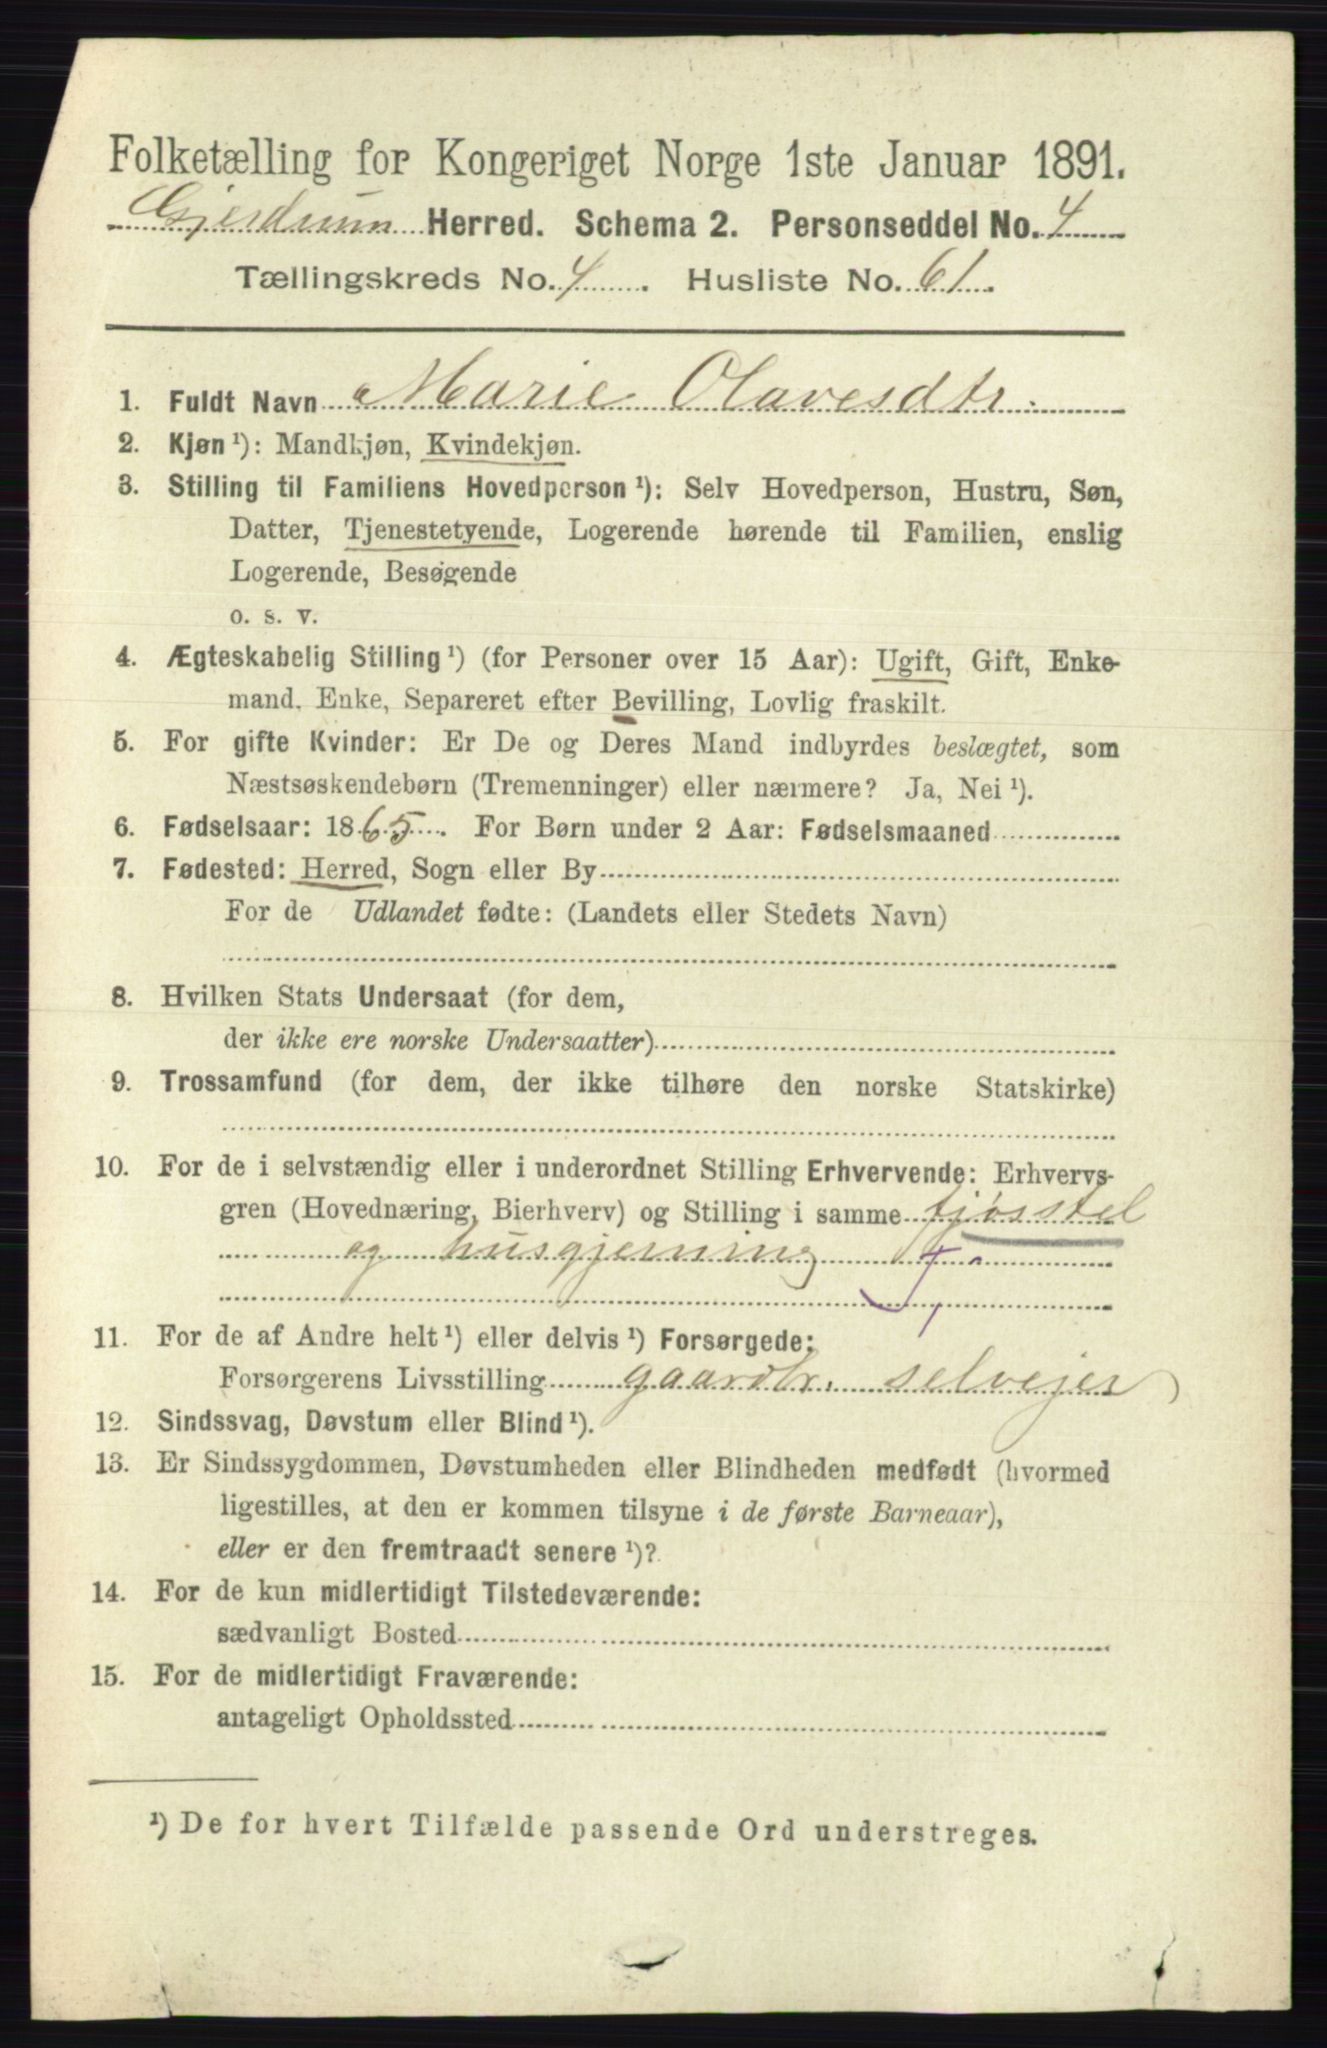 Folketælling for Kongeriget Norge 1ste Januar 1891.
Gjerdrum Herred. Schema 2. Personseddel No. 4
Tællingskreds No. 4. Husliste No. 61.
1. Fuldt Navn Marie Olavesdtr.
2. Kjøn ¹): Mandkjøn, Kvindekjøn.
3. Stilling til Familiens Hovedperson ¹): Selv Hovedperson, Hustru, Søn,
Datter, Tjenestetyende, Logerende hørende til Familien, enslig
Logerende, Besøgende
o. s. v.
4. Ægteskabelig Stilling ¹) (for Personer over 15 Aar): Ugift, Gift, Enke-
mand, Enke, Separeret efter Bevilling, Lovlig fraskilt.
5. For gifte Kvinder: Er De og Deres Mand indbyrdes beslægtet, som
Næstsøskendebørn (Tremenninger) eller nærmere? Ja, Nei ¹).
6. Fødselsaar: 1865. For Børn under 2 Aar: Fødselsmaaned
7. Fødested: Herred, Sogn eller By
For de Udlandet fødte: (Landets eller Stedets Navn)
8. Hvilken Stats Undersaat (for dem,
der ikke ere norske Undersaatter)
9. Trossamfund (for dem, der ikke tilhøre den norske Statskirke)
10. For de i selvstændig eller i underordnet Stilling Erhvervende: Erhvervs-
gren (Hovednæring, Bierhverv) og Stilling i samme fjøsstel
og husgjerning
11. For de af Andre helt ¹) eller delvis ¹) Forsørgede:
Forsørgerens Livsstilling gaardbr. selvejer
12. Sindssvag, Døvstum eller Blind ¹).
13. Er Sindssygdommen, Døvstumheden eller Blindheden medfødt (hvormed
ligestilles, at den er kommen tilsyne i de første Barneaar),
eller er den fremtraadt senere ¹)?
14. For de kun midlertidigt Tilstedeværende:
sædvanligt Bosted
15. For de midlertidigt Fraværende:
antageligt Opholdssted
¹) De for hvert Tilfælde passende Ord understreges.